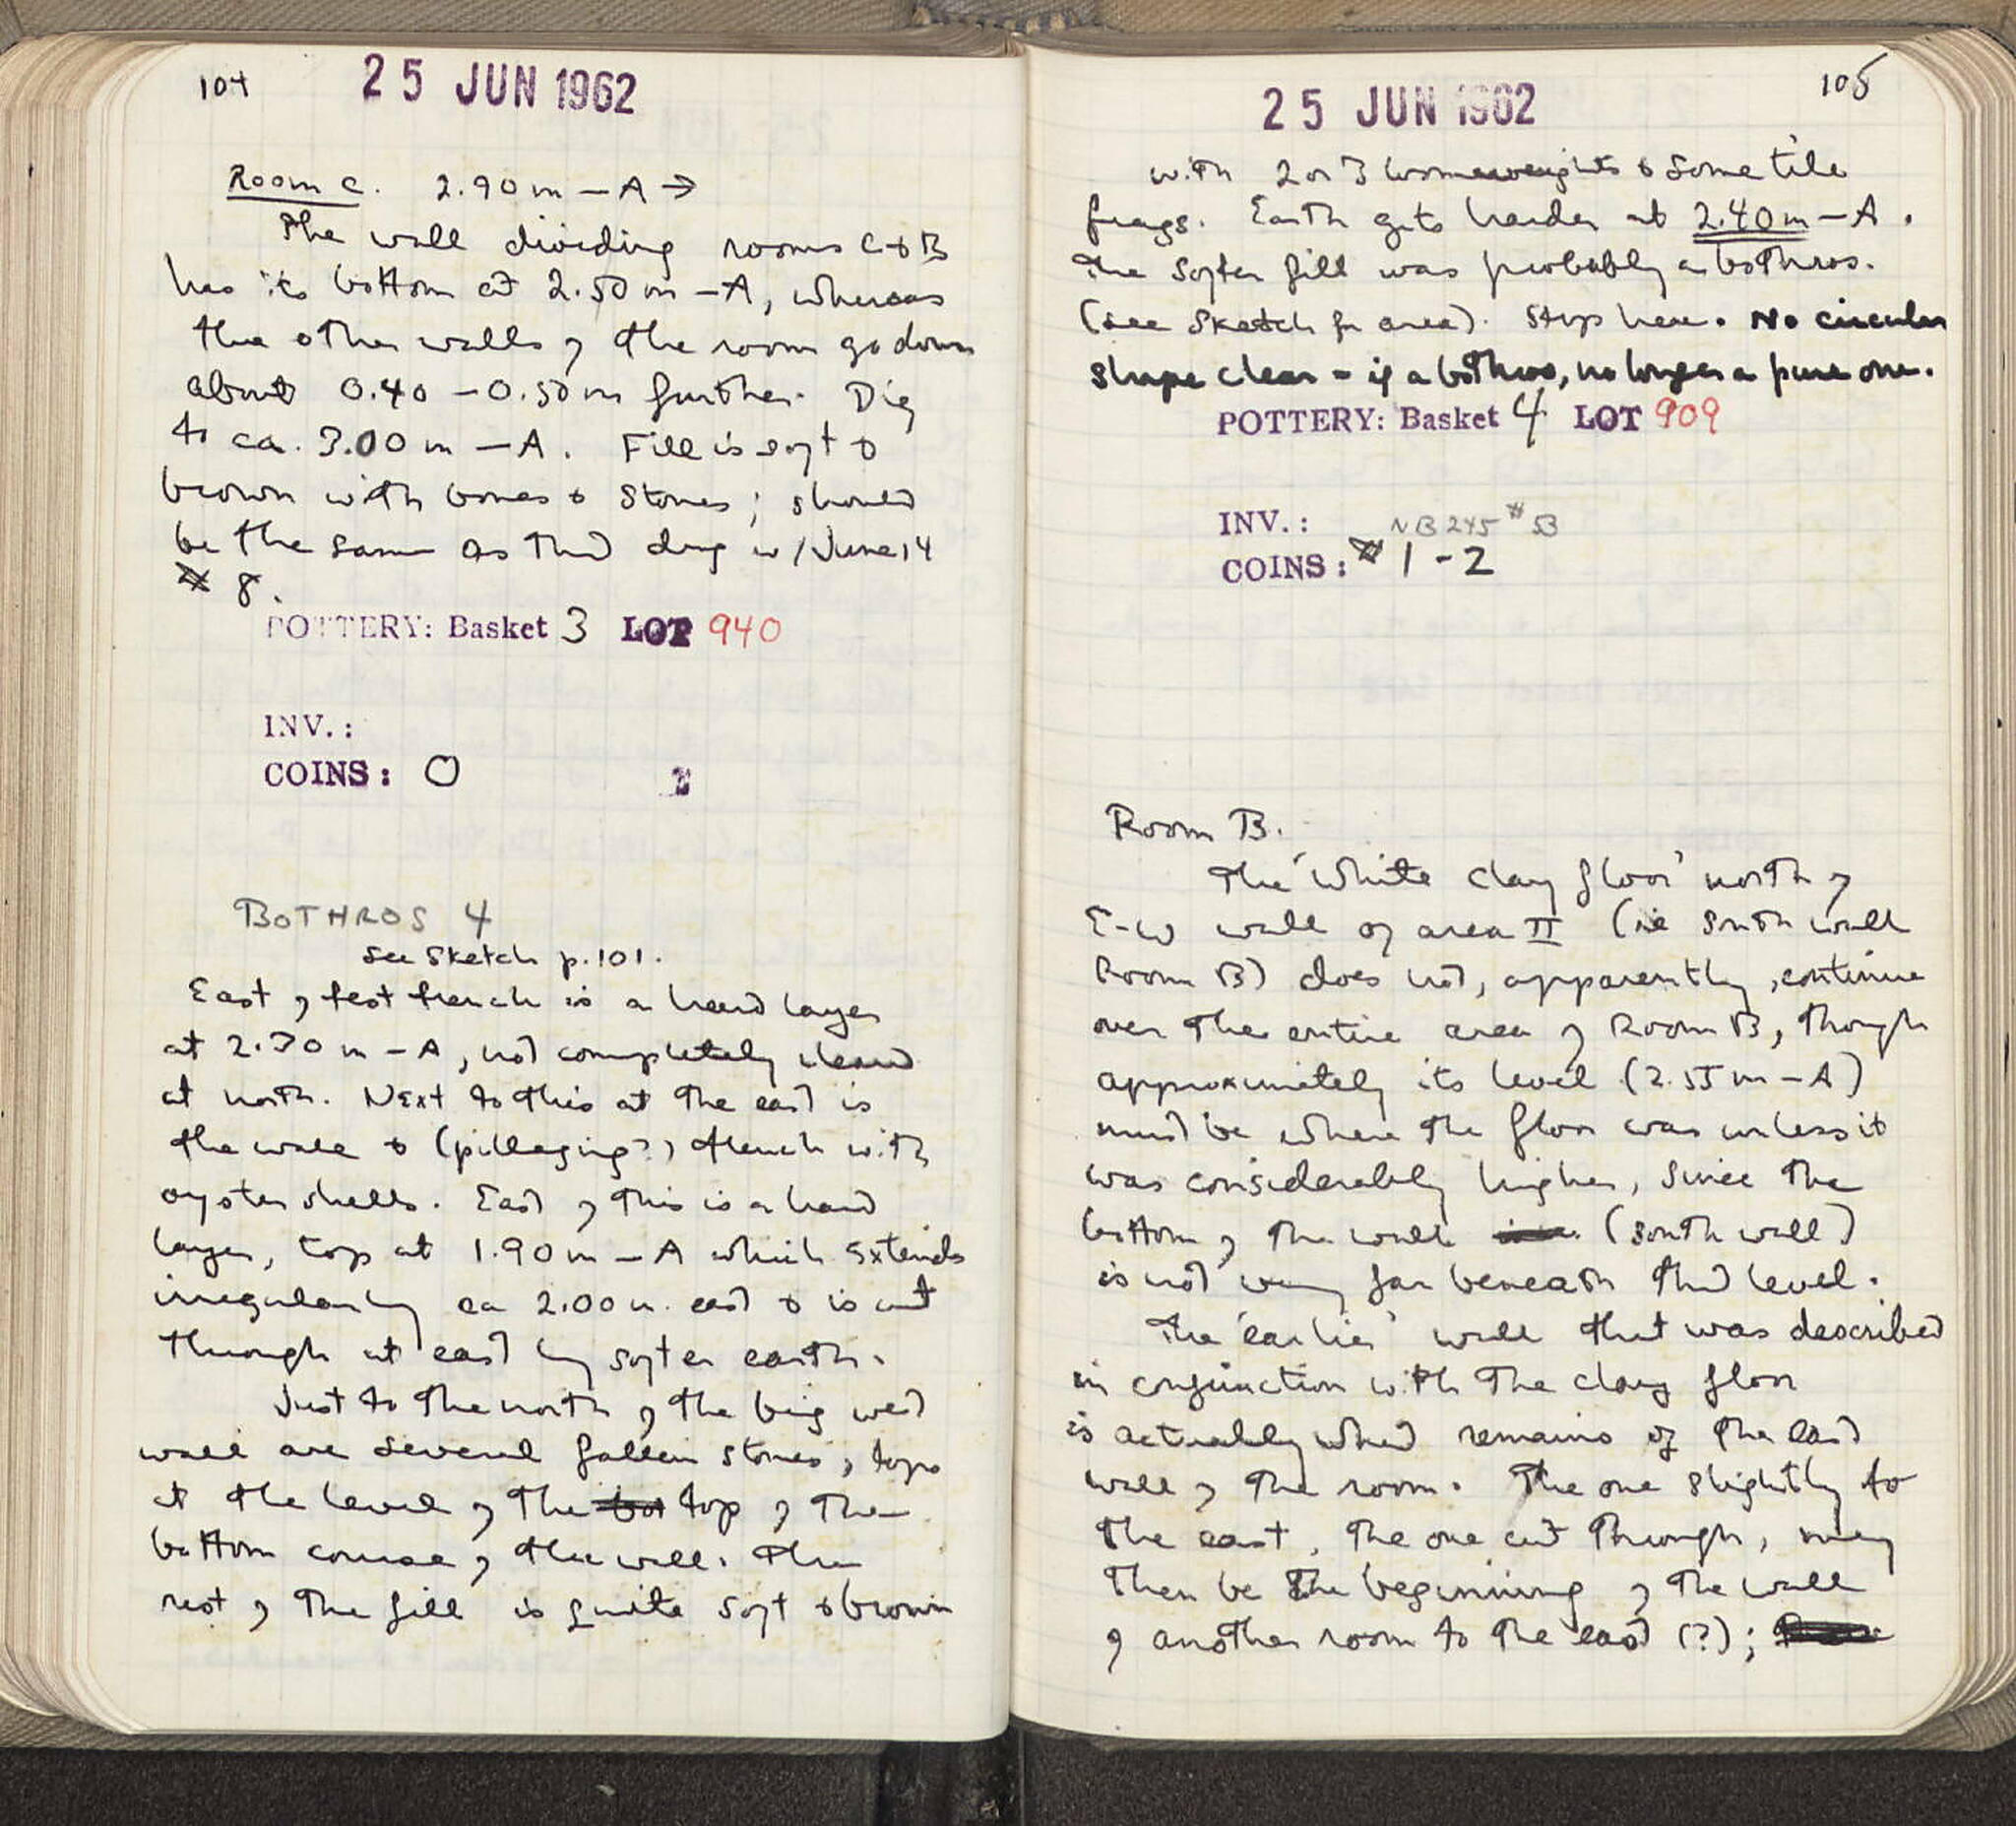 104
25 JUN 1962
Room C. 2.90 m – A →
The wall dividing rooms C & B
has its bottom at 2.50 m – A, whereas
the other walls of the room go down
about 0.40 – 0.50 m further. Dig
to ca. 3.00 m – A. Fill is soft &
brown with bones & stones; should
be the same as that dug w/ June 14
# 8.
POTTERY: Basket 3 LOT 940
INV.:
COINS: 0
BOTHROS 4
See Sketch p. 101.
East of test trench is a hard layer
at 2.30 m – A, not completely
at north. Next to this at the east is
the wall & (pillaging?) trench with
oyster shells. East of this is a hard
layer, top at 1.90 m – A which extends
irregularly ca 2.00 m. east & is cut
through at east by softer earth.
Just to the north of the big west
wall are several fallen stones, tops
at the level of the bot top of the
bottom course of the wall. The
rest of the fill is quite soft & brown
25 JUN 1962
105
with 2 or 3 loomweights & some tile
frags. Earth gets harder at 2.40 m – A.
The softer fill was probably a bothros.
(see sketch for area). Stop here. No circular
shape clear – if a bothros, no longer a pure one.
POTTERY: Basket 4 LOT 909
INV.: NB 245 # 53
COINS: # 1 - 2
Room B.
The 'white clay floor' north of
E-W wall of area II (ie south wall
Room B) does not, apparently, continue
over the entire area of Room B, though
approximately its level (2.55 m – A)
must be where the floor was unless it
was considerably higher, since the
bottom of the wall (south wall)
is not very far beneath that level.
The 'earlier' wall that was described
in conjunction with the clay floor
is actually what remains of the east
wall of the room. The one slightly to
the east, the one cut through, may
then be the beginning of the wall
of another room to the east (?);